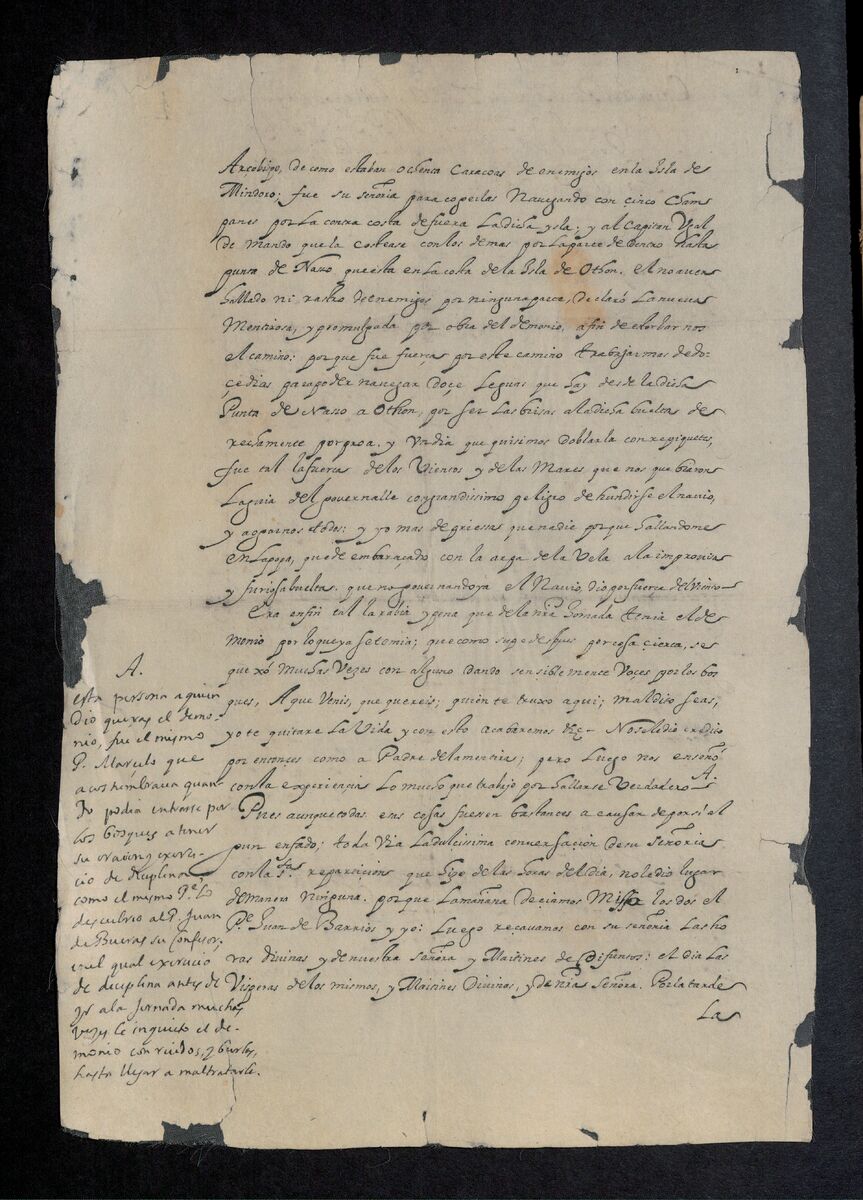 Arçobispo, de como estaban ochenta Caracoas de enemigos en la Isla de
Mindoro; fue su señoria para cogerlas Navegando con cinco Cham
panes por la contra costa de fuera la dicha ysla; y al Capitan Ugal
de Mando que la costease con los demas por la parte de dentro hasta
punta de Naso que esta en la costa de la Isla de Othon. el no aver
hallado ni rastro de enemigos por ninguna parte, declaró la nueva
Mentirosa, y promulgada por obra del demonio, a fin de estorbar nos
el camino: porque fue fuerça por este camino trabajarmos de do-
çe dias para poder navegar doçe leguas que hay desde la dicha
Punta de Naso a Othon, por ser las brisas a la dicha buelta de
rechamente por proa. y Un dia que quisimos doblarla con repiquetes,
fue tal la fuerça de los Vientos y de las Mares que nos quebraron
la guia del governalle con grandissimo peligro de hundirse el navio,
y aogarnos todos: y yo mas de priessa que nadie porque hallandome
en la popa, quede embaraçado con la arga de la Vela a la improvisa
y furiosa buelta. que no governando ya el Navio, dio por fuerça del viento
Era en fin tal la rabia y pena que de la nra Jornada tenia el de
monio por lo que ya se temia; que como supe despues por cosa çierta, se
quexó muchas Vezes con alguno dando sensiblemente Voçes por los bos
ques, A que Venis, que quereis; quien te truxo aqui; maldito seas,
yo te quitare la Vida y con esto acabaremos &c— No se le dio credito
por entonces como a Padre de la mentira; pero luego nos enseñó
con la experiençia lo mucho que trabajo por hallarse Verdadero A.
Pues aunque todas estas cosas fuesen bastantes a causar de por si al
gun enfado; toda via la dulcissima conversaçion de su señoria
con la sta. repartiçion que hizo de las horas del dia, no le dio lugar
de manera ninguna. porque la mañana deçiamos Missa los dos el
Pe. Juan de Barrios y yo: Luego reçavamos con su señoria las ho
ras divinas y de nuestra señora y Maitines de Difuntos: el dia las
Visperas de los mismos, y Maitines Divinos, y de nra señora. Por la tarde
Las
A.
esta persona a quien
dio quexas el demo-
nio, fue el mismo
P. Marçelo que
acostumbrava quan
do podia entrarse por
los bosques a tener
su oraçion y exerci-
cio de disciplina
como el mismo Pe. lo
descubrio al P. Juan
de Bueras su confesor,
en el qual exercicio
de disciplina antes de
yr a la Jornada muchas
vezes le inquieto el de-
monio con ruidos, y burlas,
hasta llegar a maltratarle.